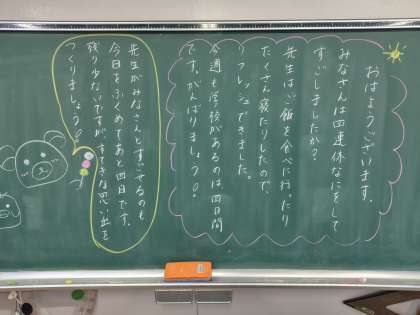 おはようございます。
みなさんは四連休なにをして
すごしましたか?
先生はご飯を食べに行ったり
たくさん寝たりしたので、
リフレッシュできました。
今週も学校があるのは四日間
です。がんばりましょう!!
先生がみなさんとすごせるのも
今日をふくめてあと四日です。
残り少ないですが、すてきな思い出を
つくりましょう!